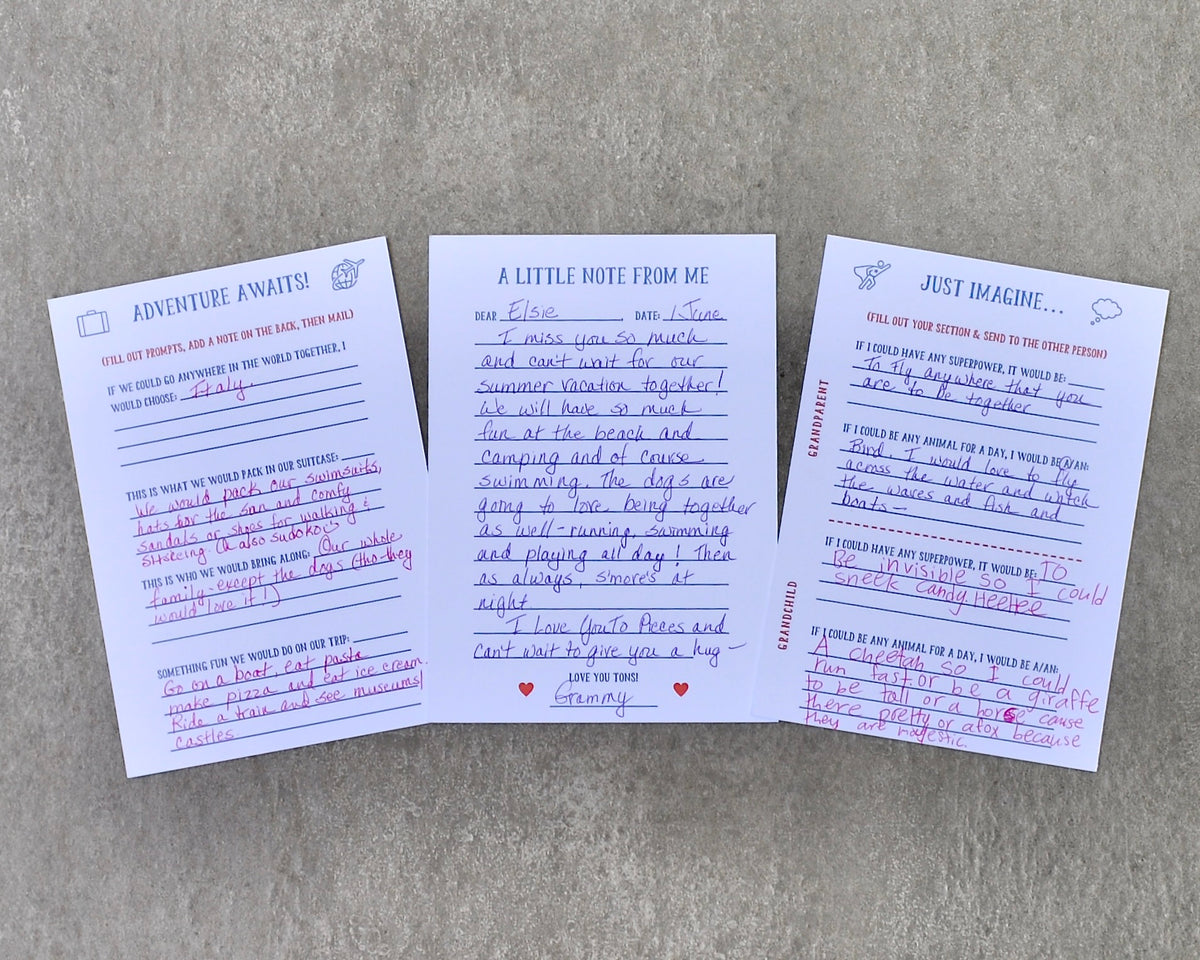 ADVENTURE AWAITS!
(FILL OUT PROMPTS, ADD A NOTE ON THE BACK, THEN MAIL)
IF WE COULD GO ANYWHERE IN THE WORLD TOGETHER, I
WOULD CHOOSE: Italy.
THIS IS WHAT WE WOULD PACK IN OUR SUITCASE:
We would pack our swimsuits,
hats for the sun and comfy
sandals or shoes for walking &
sitseeing. (& also sudoko
THIS IS WHO WE WOULD BRING ALONG: Our whole
family-except the dogs (tho they
would love it!)
SOMETHING FUN WE WOULD DO ON OUR TRIP:
Go on a boat, eat pasta
make pizza and eat ice cream.
Ride a train and see museums/
castles.
A LITTLE NOTE FROM ME
DEAR Elsie DATE: 1 June
I miss you so much
and can't wait for our
summer vacation together!
We will have so much
fun at the beach and
camping and of course
swimming. The dogs are
going to love being together
as well-running, swimming
and playing all day! Then
as always, s'more's at
night.
I Love You To Pieces and
can't wait to give you a hug-
LOVE YOU TONS!
Grammy
JUST IMAGINE...
(FILL OUT YOUR SECTION & SEND TO THE OTHER PERSON)
GRANDPARENT
IF I COULD HAVE ANY SUPERPOWER, IT WOULD BE:
To fly anywhere that you
are to be together
IF I COULD BE ANY ANIMAL FOR A DAY, I WOULD BE A/AN:
Bird. I would love to fly
across the water and watch
the waves and fish and
boats-
GRANDCHILD
IF I COULD HAVE ANY SUPERPOWER, IT WOULD BE: TO
Be invisible so I could
sneek candy. Heehee
IF I COULD BE ANY ANIMAL FOR A DAY, I WOULD BE A/AN:
A cheetah so I could
run fast or be a giraffe
to be tall or a horse cause
there pretty or a fox because
they are majestic.